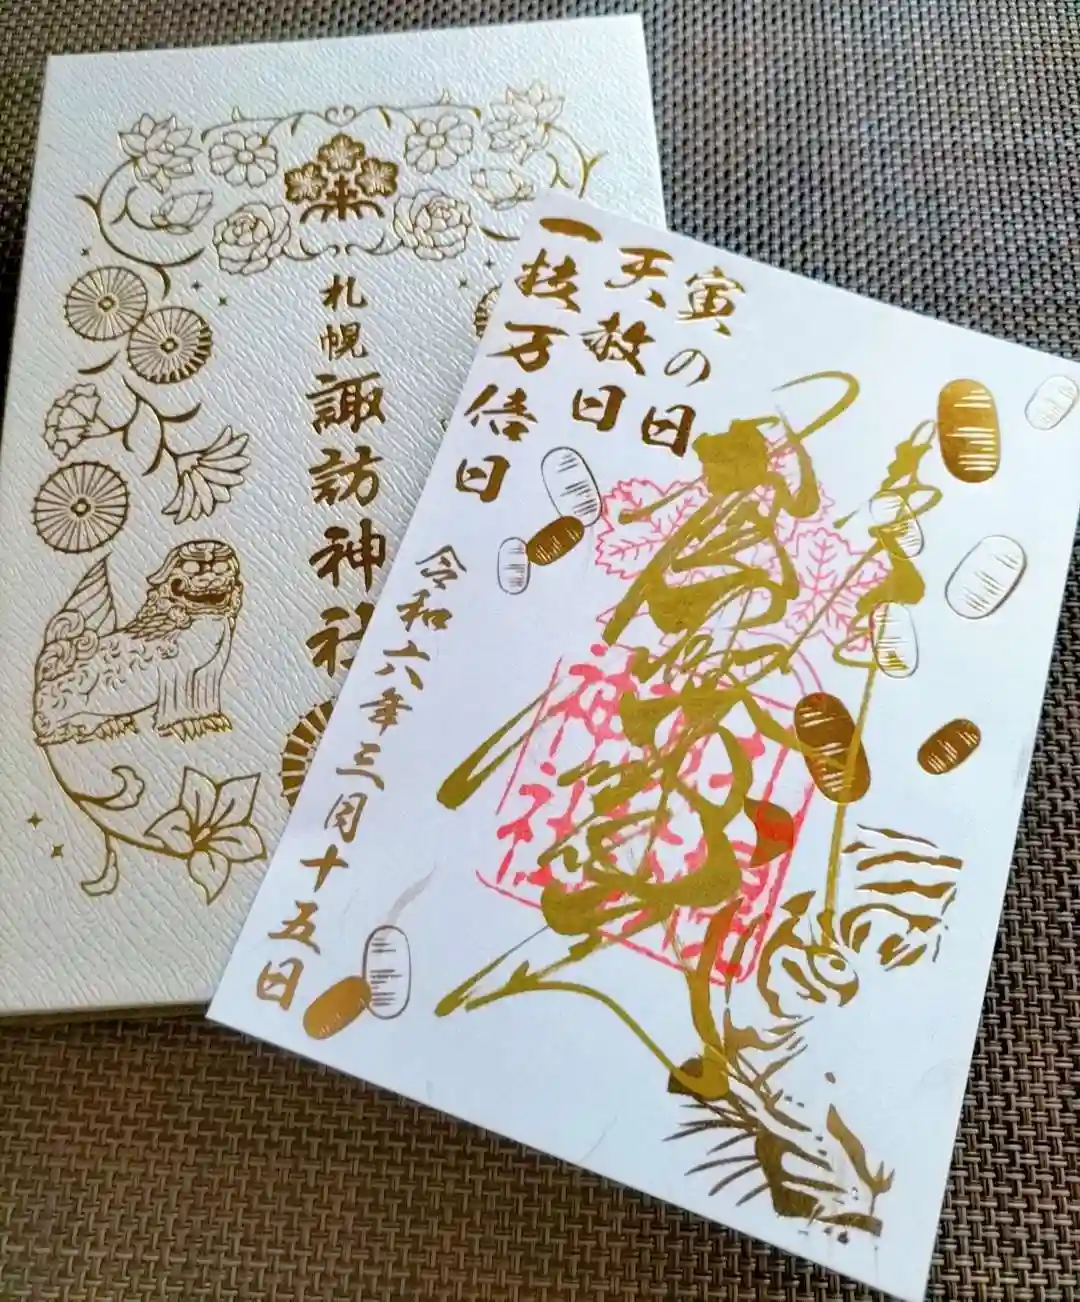 札幌
諏訪神社
寅の日
天赦日
一粒万倍日
令和六年三月十五日